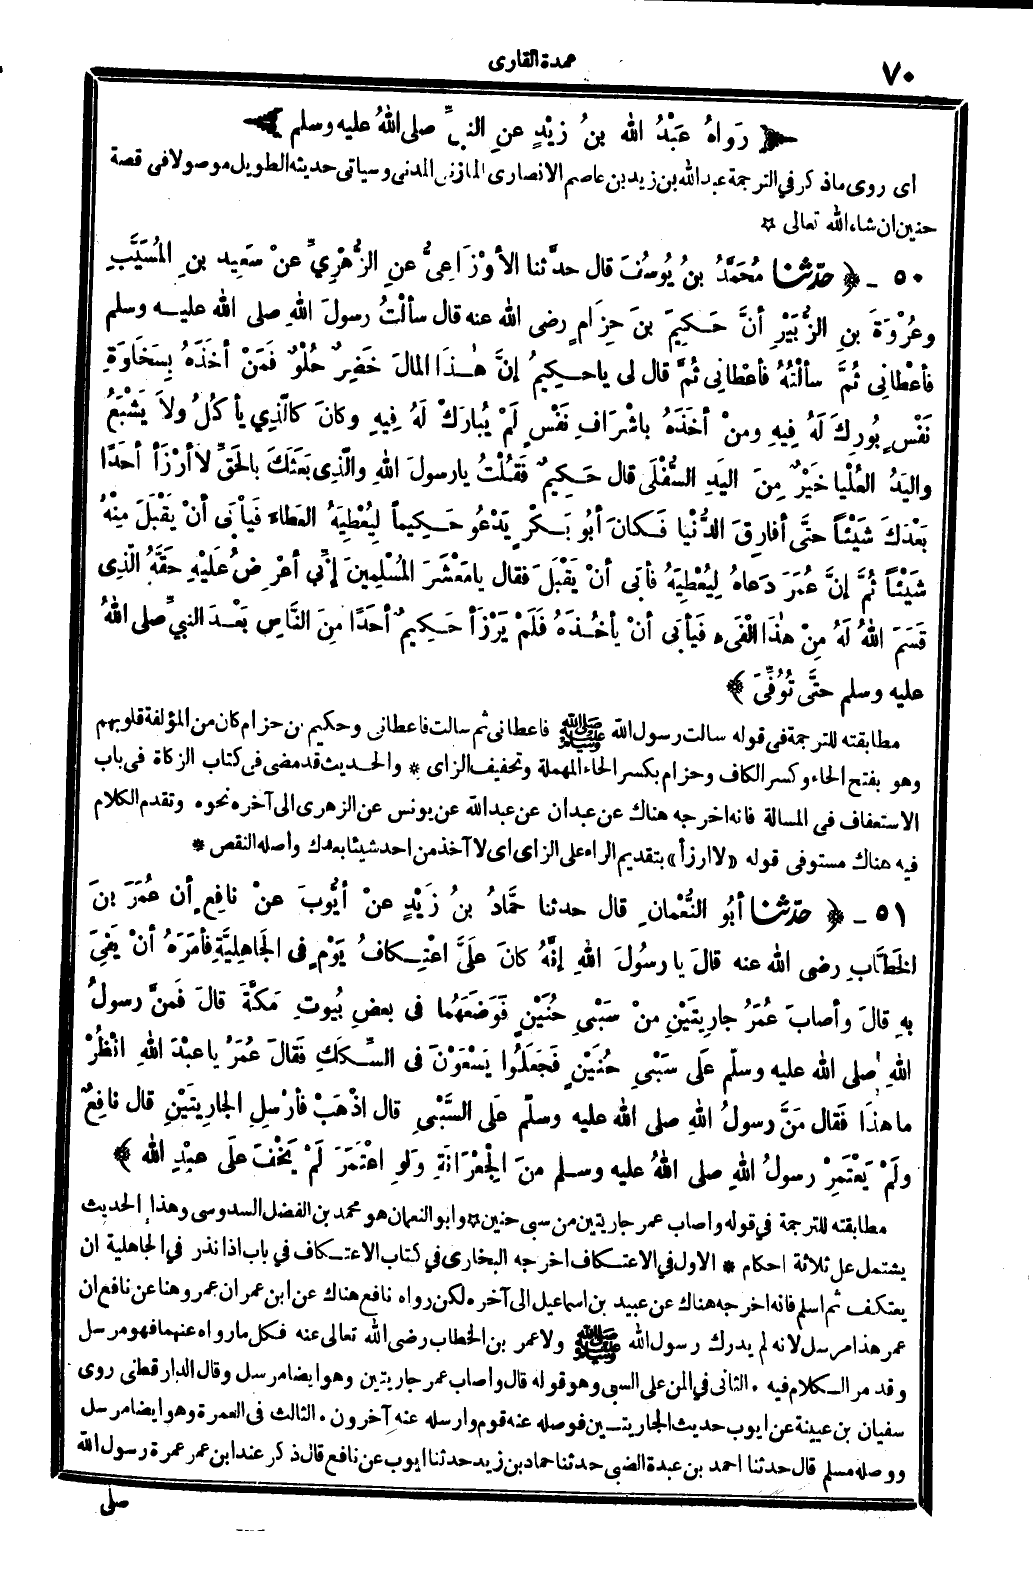 ٧٠
عمدة القارى
رَواهُ عَبْدُ اللهِ بنُ زَيْدٍ عنِ النبىِّ صلى اللهُ عليه وسلم
اى روى ماذكر فى الترجمة عبدالله بن زيد بن عاصم الانصارى المازنى المدنى وسياتى حديثه الطويل موصولا فى قصة
حنين ان شاءالله تعالى ۞
٥٠ - ﴿ حدّثنا مُحَمَّدُ بنُ يُوسُفَ قال حدَّثنا الأوْزَاعِىُّ عنِ الزُّهْرِيِّ عنْ سَعِيد بنِ المُسَيَّبِ
وعُرْوَةَ بنِ الزُّبَيْرِ أنَّ حَكِيمَ بنَ حِزَامٍ رضى الله عنه قال سألْتُ رسولَ اللهِ صلى الله عليه وسلم
فأعْطانِى ثُمَّ سألْتُهُ فأعْطانِى ثُمَّ قال لى ياحكِيمُ إنَّ هٰذَا المَالَ خَضِرٌ حُلْوٌ فَمَنْ أخَذَهُ بِسَخَاوَةِ
نَفْسٍ بُورِكَ لَهُ فِيهِ ومنْ أخَذَهُ باشْرَافِ نَفْسٍ لَمْ يُبارَكْ لَهُ فِيهِ وكانَ كالَّذِي يأكُلُ ولاَ يَشْبَعُ
واليَدُ العُلْيا خَيْرٌ مِنَ اليَدِ السُّفْلَى قال حَكِيمٌ فَقُلْتُ يارسولَ اللهِ والَّذِى بَعَثَكَ بالحَقِّ لاأرْزَأُ أحَدًا
بَعْدَكَ شَيْئاً حتَّى أفارِقَ الدُّنْيا فَكانَ أبُو بَكْرٍ يَدْعُو حَكِيماً لِيُعْطِيَهُ العَطاءَ فَيَأبَى أنْ يَقْبَلَ مِنْهُ
شَيْئاً ثُمَّ إنَّ عُمَرَ دَعاهُ لِيُعْطِيَهُ فأبَى أنْ يَقْبَلَ فقال يامَعْشَرَ المُسْلِمِينَ إنِّي أعْرِضُ عَلَيْهِ حَقَّهُ الَّذِى
قَسَمَ اللهُ لَهُ مِنْ هٰذَا الْفَىْءِ فَيَأبَى أنْ يأخُذَهُ فَلَمْ يَرْزَأْ حَكِيمٌ أحَدًا مِنَ النَّاسِ بَعْدَ النبيِّ صلى اللهُ
عليه وسلم حتَّى تُوُفِّىَ ﴾
مطابقته للترجمة فى قوله سالت رسول الله ﷺ فاعطانى ثم سالت فاعطانى وحكيم بن حزام كان من المؤلفة قلوبهم
وهو بفتح الحاء وكسر الكاف وحزام بكسر الحاء المهملة وتخفيف الزاى * والحديث قدمضى فى كتاب الزكاة فى باب
الاستعفاف فى المسالة فانه اخرجه هناك عن عبدان عن عبدالله عن يونس عن الزهرى الى آخره نحوه وتقدم الكلام
فيه هناك مستوفى قوله «لاارزأ» بتقديم الراء على الزاى اى لا آخذ من احد شيئا بعدك وأصله النقص *
٥١ - ﴿ حدّثنا أبُو النُّعْمانِ قال حدثنا حَمَّادُ بنُ زَيْدٍ عنْ أيُّوبَ عنْ نافِعٍ أن عُمَرَ بنَ
الخَطَّابِ رضى الله عنه قالَ يا رسُولَ اللهِ إنَّهُ كانَ علَىَّ اعْتِكافُ يَوْمٍ فى الجَاهِلِيَّةِ فأمَرَهُ أنْ يَفِىَ
بِهِ قالَ وأصابَ عُمَرُ جارِيتَيْنِ مِنْ سَبْىِ حُنَيْنٍ فَوَضَعَهُما فى بعضِ بُيوتِ مَكَّةَ قالَ فَمنَّ رسولُ
اللهِ صلى الله عليه وسلّم علَى سَبْىِ حُنَيْنٍ فَجعَلُوا يَسْعَوْنَ فى السِّكَكِ فَقالَ عُمَرُ ياعبْدَ اللهِ انْظُرْ
ماهذَا فَقال مَنَّ رسولُ اللهِ صلى الله عليه وسلّم علَى السَّبْىِ قال اذْهَبْ فأرْسِلِ الجارِيتَيْنِ قال نافِعٌ
ولَمْ يَعْتَمِرْ رسولُ اللهِ صلى اللهُ عليه وسلم منَ الجِعْرَانَةِ ولَوِ اعْتَمَرَ لَمْ يَخْفَ علَى عبْدِ الله ﴾
مطابقته للترجمة فى قوله واصاب عمر جاريتين من سبى حنين ۞ وابو النعمان هو محمد بن الفضل السدوسى وهذا الحديث
يشتمل على ثلاثة احكام * الاول فى الاعتكاف اخرجه البخارى فى كتاب الاعتكاف فى باب اذا نذر فى الجاهلية ان
يعتكف ثم اسلم فانه اخرجه هناك عن عبيد بن اسماعيل الى آخره. لكن رواه نافع هناك عن ابن عمران عمر وهنا عن نافع ان
عمر هذا مرسل لانه لم يدرك رسول الله ﷺ ولا عمر بن الخطاب رضى الله تعالى عنه فكل مارواه عنهما فهو مرسل
وقد مر الكلام فيه . الثانى فى المن على السبى وهو قوله قال واصاب عمر جاريتين وهو ايضا مرسل وقال الدارقطنى روى
سفيان بن عيينة عن ايوب حديث الجاريتين فوصله عنه قوم وارسله عنه آخرون . الثالث فى العمرة وهو ايضا مرسل
ووصله مسلم قال حدثنا احمد بن عبدة الضبى حدثنا حماد بن زيد حدثنا ايوب عن نافع قال ذكر عند ابن عمر عمرة رسول الله
صلى